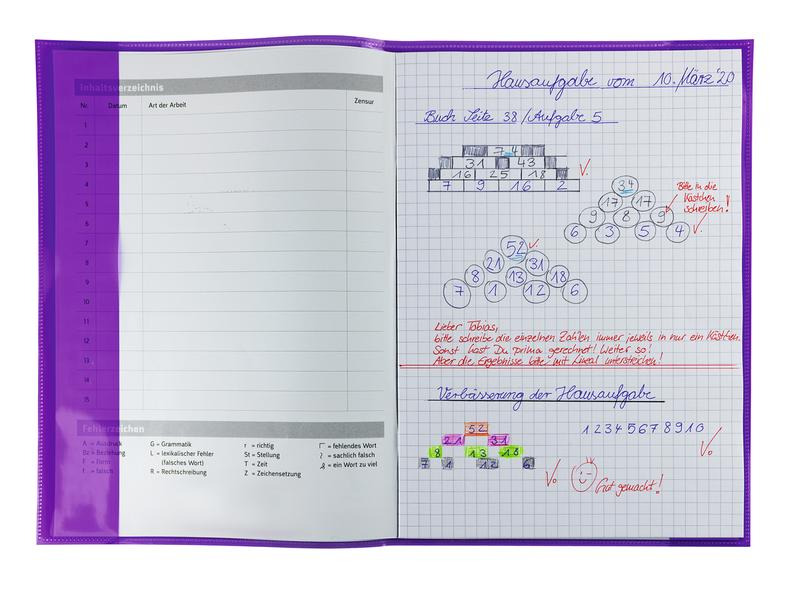 Inhaltsverzeichnis
Nr. Datum Art der Arbeit Zensur
1
2
3
4
5
6
7
8
9
10
11
12
13
14
15
Fehlerzeichen
A = Ausdruck G = Grammatik r = richtig = fehlendes Wort
Bz = Beziehung L = lexikalischer Fehler St = Stellung = sachlich falsch
F = Form (falsches Wort) T = Zeit = ein Wort zu viel
f = falsch R = Rechtschreibung Z = Zeichensetzung
Hausaufgabe vom 10. März '20
Buch Seite 38/Aufgabe 5
74
31 43
16 25 18
7 9 16 2
34
17 17
9 8 9
6 3 5 4
Bitte in die
Kästchen
schreiben!
52
21 31
8 13 18
7 1 12 6
Lieber Tobias,
bitte schreibe die einzelnen Zahlen immer jeweils in nur ein Kästchen.
Sonst hast Du prima gerechnet! Weiter so!
Aber die Ergebnisse bitte mit Lineal unterstreichen!
Verbässerung der Hausaufgabe
52
21 31
8 13 18
7 1 12 6
1 2 3 4 5 6 7 8 9 10
Gut gemacht!